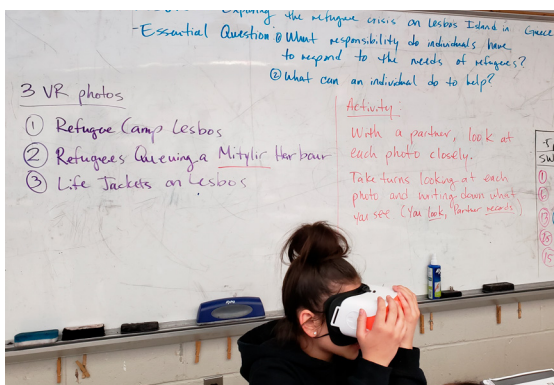 Exploring the refugee crisis on Lesbos Island in Greece
- Essential Question ① What responsibility do individuals have
to respond to the needs of refugees?
② What can an individual do to help?
3 VR photos
① Refugee Camp Lesbos
② Refugees Queuing a Mitylir Harbour
③ Life Jackets on Lesbos
Activity:
With a partner, look at
each photo closely.
Take turns looking at each
photo and writing down what
you see (You look, Partner records)